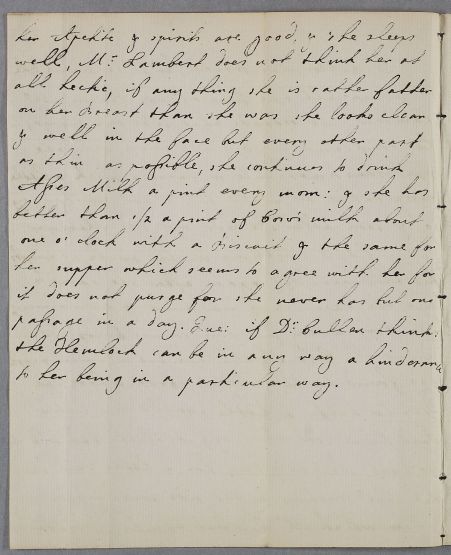 her Apetite & spirits are good, & she sleeps
well, Mr. Lambert does not think her at
all hectic, if any thing she is rather fatter
on her Breast than she was she looks clear
& well in the face but every other part
as thin as possible, she continues to drink
Asses Milk a pint every morn: & she has
better than 1/2 a pint of Cow's milk about
one o'clock with a Biscuit & the same for
her supper which seems to agree with her for
it does not purge for she never has but one
passage in a day. Que: if Dr. Cullen thinks
the Hemlock can be in any way a hinderance
to her being in a particular way.